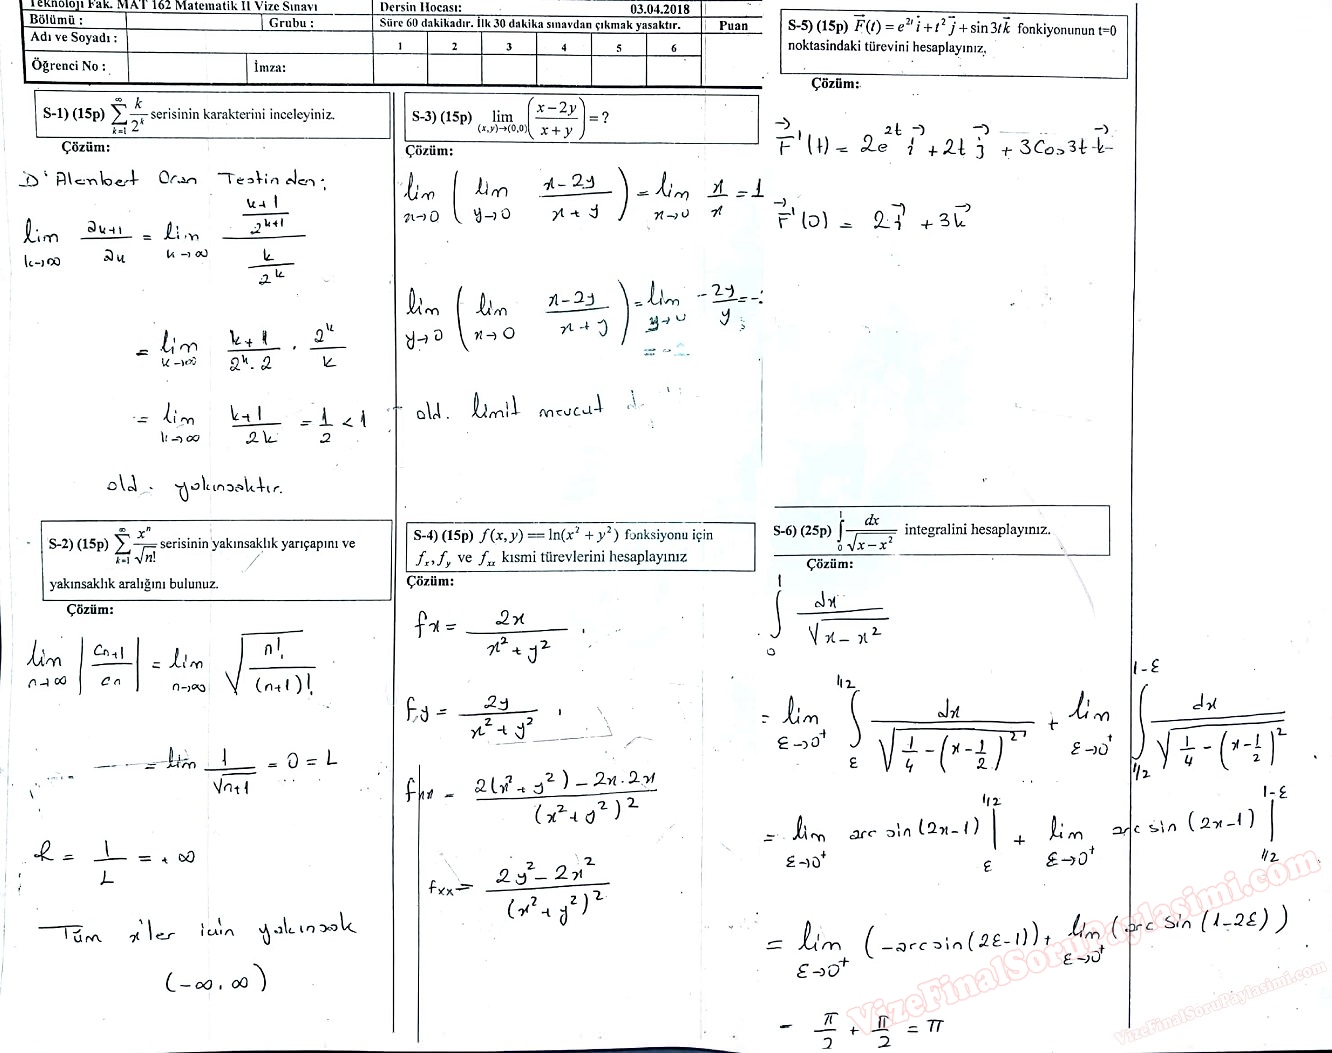 Teknoloji Fak. MAT 162 Matematik II Vize Sınavı
Dersin Hocası:
03.04.2018
Bölümü :
Grubu :
Süre 60 dakikadır. İlk 30 dakika sınavdan çıkmak yasaktır.
Puan
Adı ve Soyadı :
1 2 3 4 5 6
Öğrenci No :
İmza:
S-1) (15p) ∑_{k=1}^{∞} k/2^k serisinin karakterini inceleyiniz.
Çözüm:
D'Alembert Oran Testinden;
lim_{k→∞} a_{k+1}/a_k = lim_{k→∞} ((k+1)/2^{k+1})/(k/2^k)
= lim_{k→∞} (k+1)/(2^k.2) . 2^k/k
= lim_{k→∞} (k+1)/2k = 1/2 < 1
old. yakınsaktır.
S-2) (15p) ∑_{k=1}^{∞} x^n/√n! serisinin yakınsaklık yarıçapını ve
yakınsaklık aralığını bulunuz.
Çözüm:
lim_{n→∞} |c_{n+1}/c_n| = lim_{n→∞} √(n!/(n+1)!)
= lim 1/√(n+1) = 0 = L
R = 1/L = +∞
Tüm x'ler için yakınsak
(-∞, ∞)
S-3) (15p) lim_{(x,y)→(0,0)} ((x-2y)/(x+y)) = ?
Çözüm:
lim_{x→0} (lim_{y→0} (x-2y)/(x+y)) = lim_{x→0} x/x = 1
lim_{y→0} (lim_{x→0} (x-2y)/(x+y)) = lim_{y→0} -2y/y =
old. limit mevcut
S-4) (15p) f(x,y) = ln(x²+y²) fonksiyonu için
f_x, f_y ve f_xx kısmi türevlerini hesaplayınız
Çözüm:
f_x = 2x/(x²+y²) ,
f_y = 2y/(x²+y²) ,
f_xx = (2(x²+y²) - 2x.2x)/(x²+y²)²
f_xx = (2y²-2x²)/(x²+y²)²
S-5) (15p) F⃗(t) = e^{2t} i⃗ + t² j⃗ + sin 3t k⃗ fonkiyonunun t=0
noktasındaki türevini hesaplayınız.
Çözüm:
F⃗'(t) = 2e^{2t} i⃗ + 2t j⃗ + 3Cos3t k⃗
F⃗'(0) = 2i⃗ + 3k⃗
S-6) (25p) ∫_0^1 dx/√(x-x²) integralini hesaplayınız.
Çözüm:
∫_0^1 dx/√(x-x²)
= lim_{ε→0⁺} ∫_ε^{1/2} dx/√(1/4-(x-1/2)²) + lim_{ε→0⁺} ∫_{1/2}^{1-ε} dx/√(1/4-(x-1/2)²)
= lim_{ε→0⁺} arcsin(2x-1)|_ε^{1/2} + lim_{ε→0⁺} arcsin(2x-1)|_{1/2}^{1-ε}
= lim_{ε→0⁺} (-arcsin(2ε-1)) + lim_{ε→0⁺} (arcsin(1-2ε))
= π/2 + π/2 = π
VizeFinalSoruPaylasimi.com
VizeFinalSoruPaylasimi.com